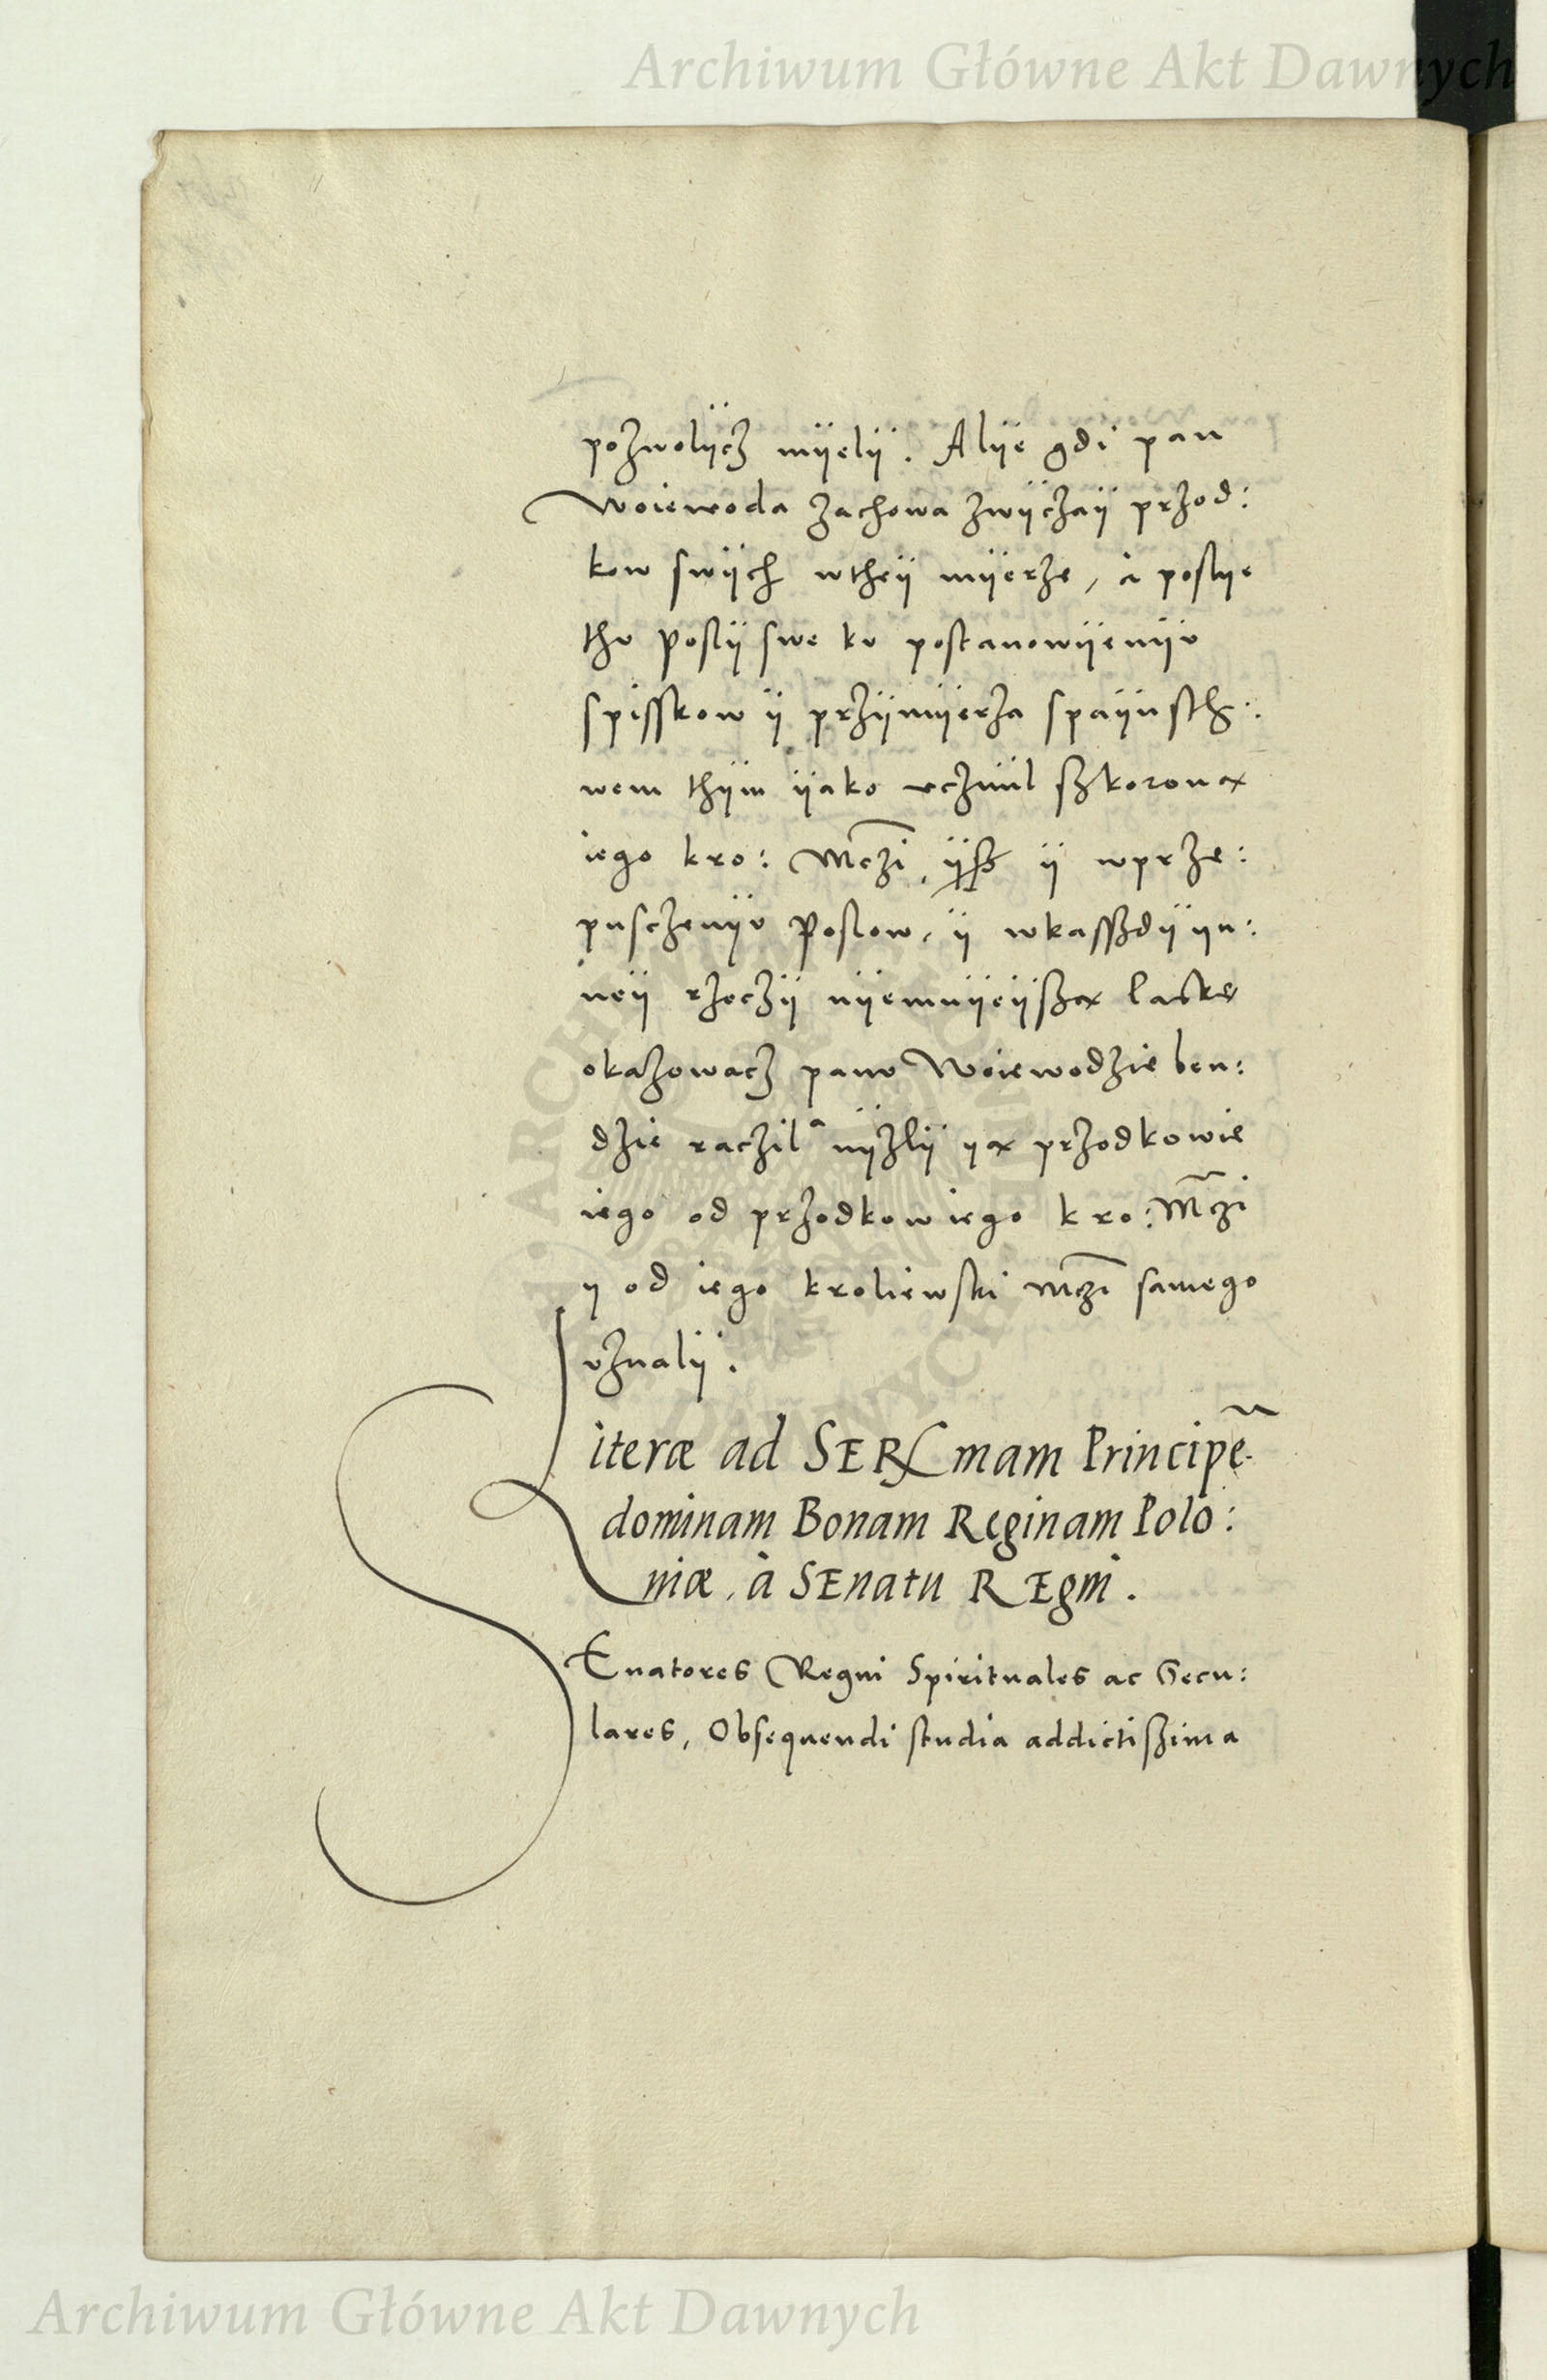 Archiwum Główne Akt Dawnych
pozwolÿcz mÿelÿ. Alÿe gdi pan
Woiewoda zachowa zwÿczaÿ przod:
kow swÿch wtheÿ mÿerze, à poslÿe
thv Poslÿ swe kv postanowÿenÿv
spisskow ÿ przÿmÿerza
wem thÿm ÿako vczinil szkorona
iego kro: Mczi, ÿsz ÿ wprze:
pusczenÿv Poslow, ÿ wkasszdÿ ÿn:
neÿ rzeczÿ nÿemnÿeÿsza laske
okazowacz panv Woiewodzie ben:
dzie raczil nÿzlÿ ya przodkowie
iego od przodkow iego kro: Mczi
y od iego kroliewski mczi samego
vznalÿ.
Literæ ad SERmam Principē
dominam Bonam Reginam Polo:
niæ, à SEnatu REgni.
SEnatores Regni Spirituales ac Secu:
lares, Obsequendi studia addictissima
Archiwum Główne Akt Dawnych